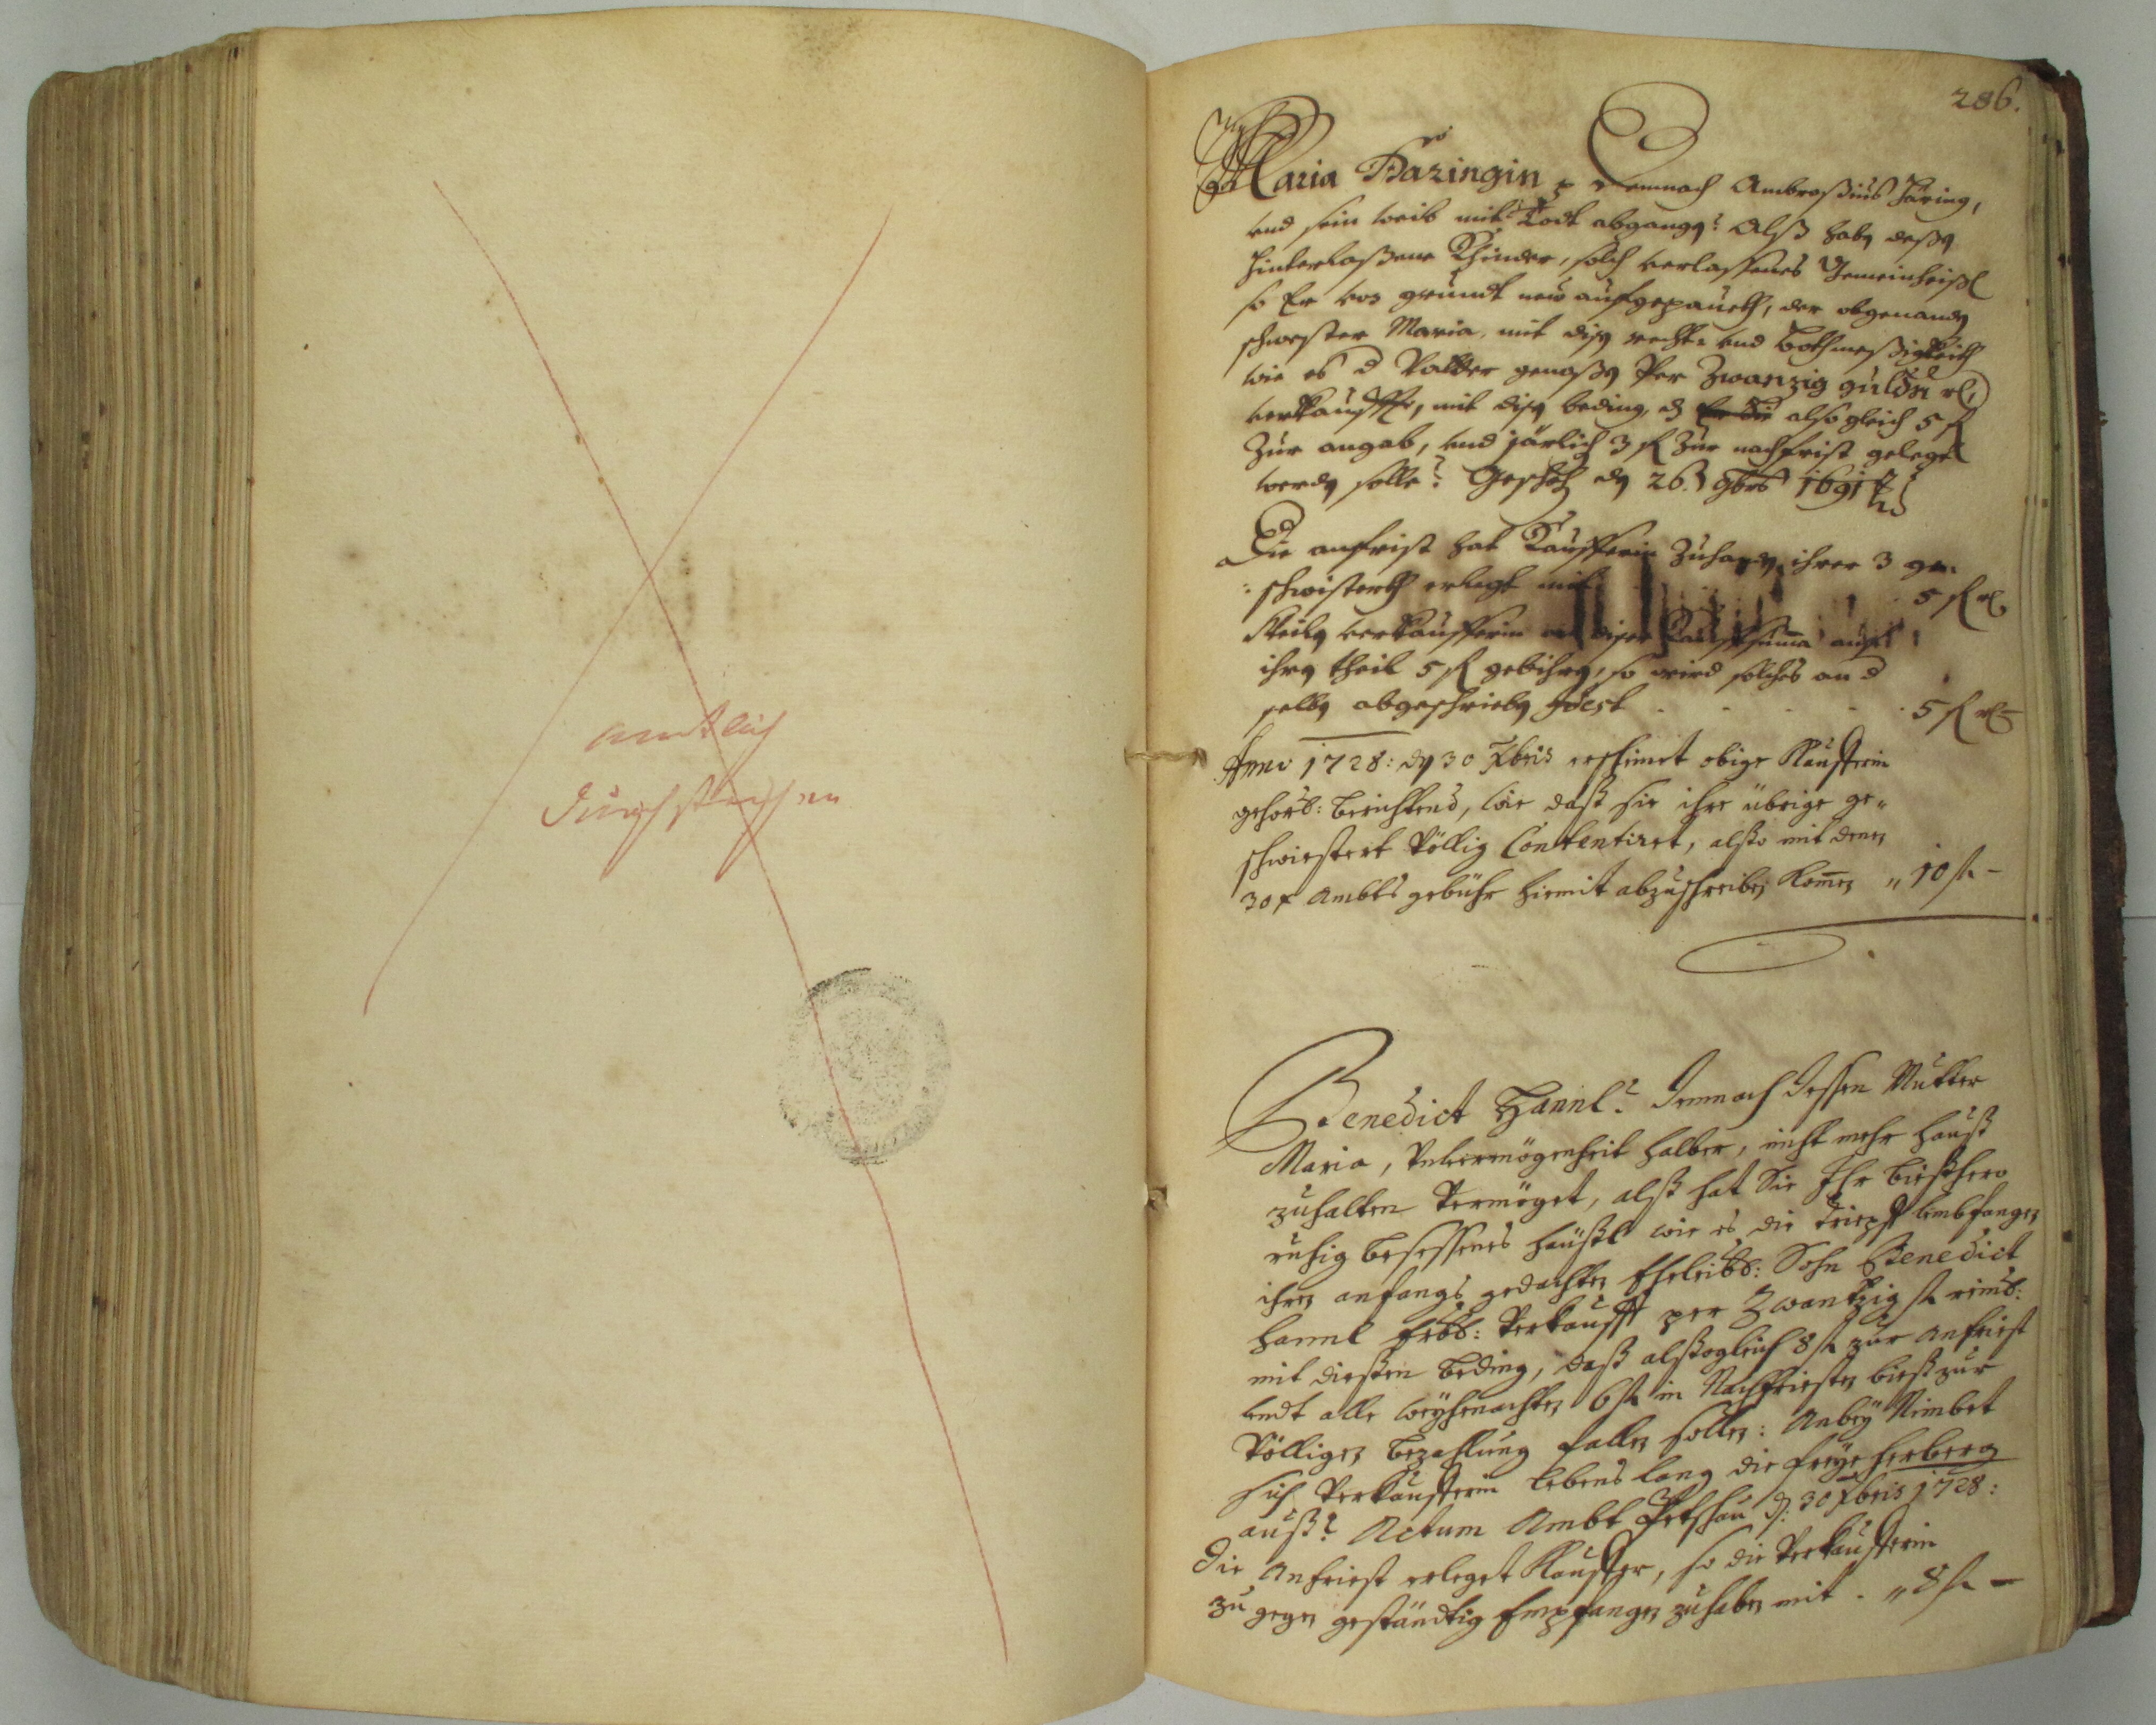 amtlich
durchstrichen
286.
Maria Häringin p Demnach Ambrosius Häring,
und sein weib mit Todt abgangen: Alß haben deßen
hinterlaßene Khinder, solch verlassenes Gemeinheißl
so Er von grundt new aufgepaueth, der obgenanden
schwester Maria, mit disen recht- und Bothmeßigkeith
wie es d Vatter genoßen Per Zwanzig guldn rl,
verkaufft, mit disen beding, dz Er Sie also gleich 5 fl
Zur angab, und järlich 3 fl Zur nachfrist gelegt
werden solle: Geschehen den 26. 9bris 1691
Die anfrist hat Kaufferin Zuhanden ihrer 3 ge-
schwisterth erlegt mit . 5 fl rl
Weilen verkaufferin an diser Kauffsuma auch
ihren theil 5 fl gebihren, so wird solches an d
selben abgeschrieben idest . . . . . 5 fl rl
Anno 1728: den 30 Xbris erscheinet obige Kaufferin
gehors: berichtend, wie daß sie ihre übrige ge-
schwiestert Völlig Contentiret, also mit denen
30 x Ambts gebühr hiemit abzuschreiben komen " 10 fl -
Benedict Hannl: demnach dessen Mutter
Maria, Unvermögenheit halber, nicht mehr hauß
zuhalten Vermöget, alß hat Sie Ihr bießhero
ruhig besessenes häußl wie es die
ihren anfangs gedachten Eheleibl: Sohn Benedict
Hannl Erbl: Verkaufft per Zwantzig fl reinl:
mit dießen beding, daß alßogleich 8 fl zur Anfriest
undt alle weyhenachten 6 fl in Nachfriesten bieß zur
Völligen bezahlung fallen sollen: Anbey Nimbet
sich Verkaufferin lebens lang die freye herberg
auß: Actum Ambt Petschau d: 30 Xbris 1728:
Die Anfriest erleget Kauffer, so die Verkaufferin
zu gegen geständtig Empfangen zuhaben mit . " 8 fl -